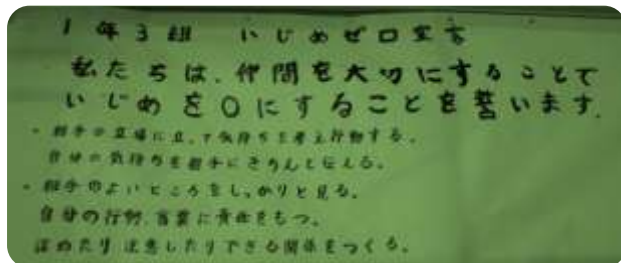 1年3組 いじめゼロ宣言
私たちは、仲間を大切にすることで
いじめを0にすることを誓います。
・相手の立場に立って気持ちを考え行動する。
自分の気持ちを相手にきちんと伝える。
・相手のよいところをしっかりと見る。
自分の行動、言葉に責任をもつ。
ほめたり注意したりできる関係をつくる。